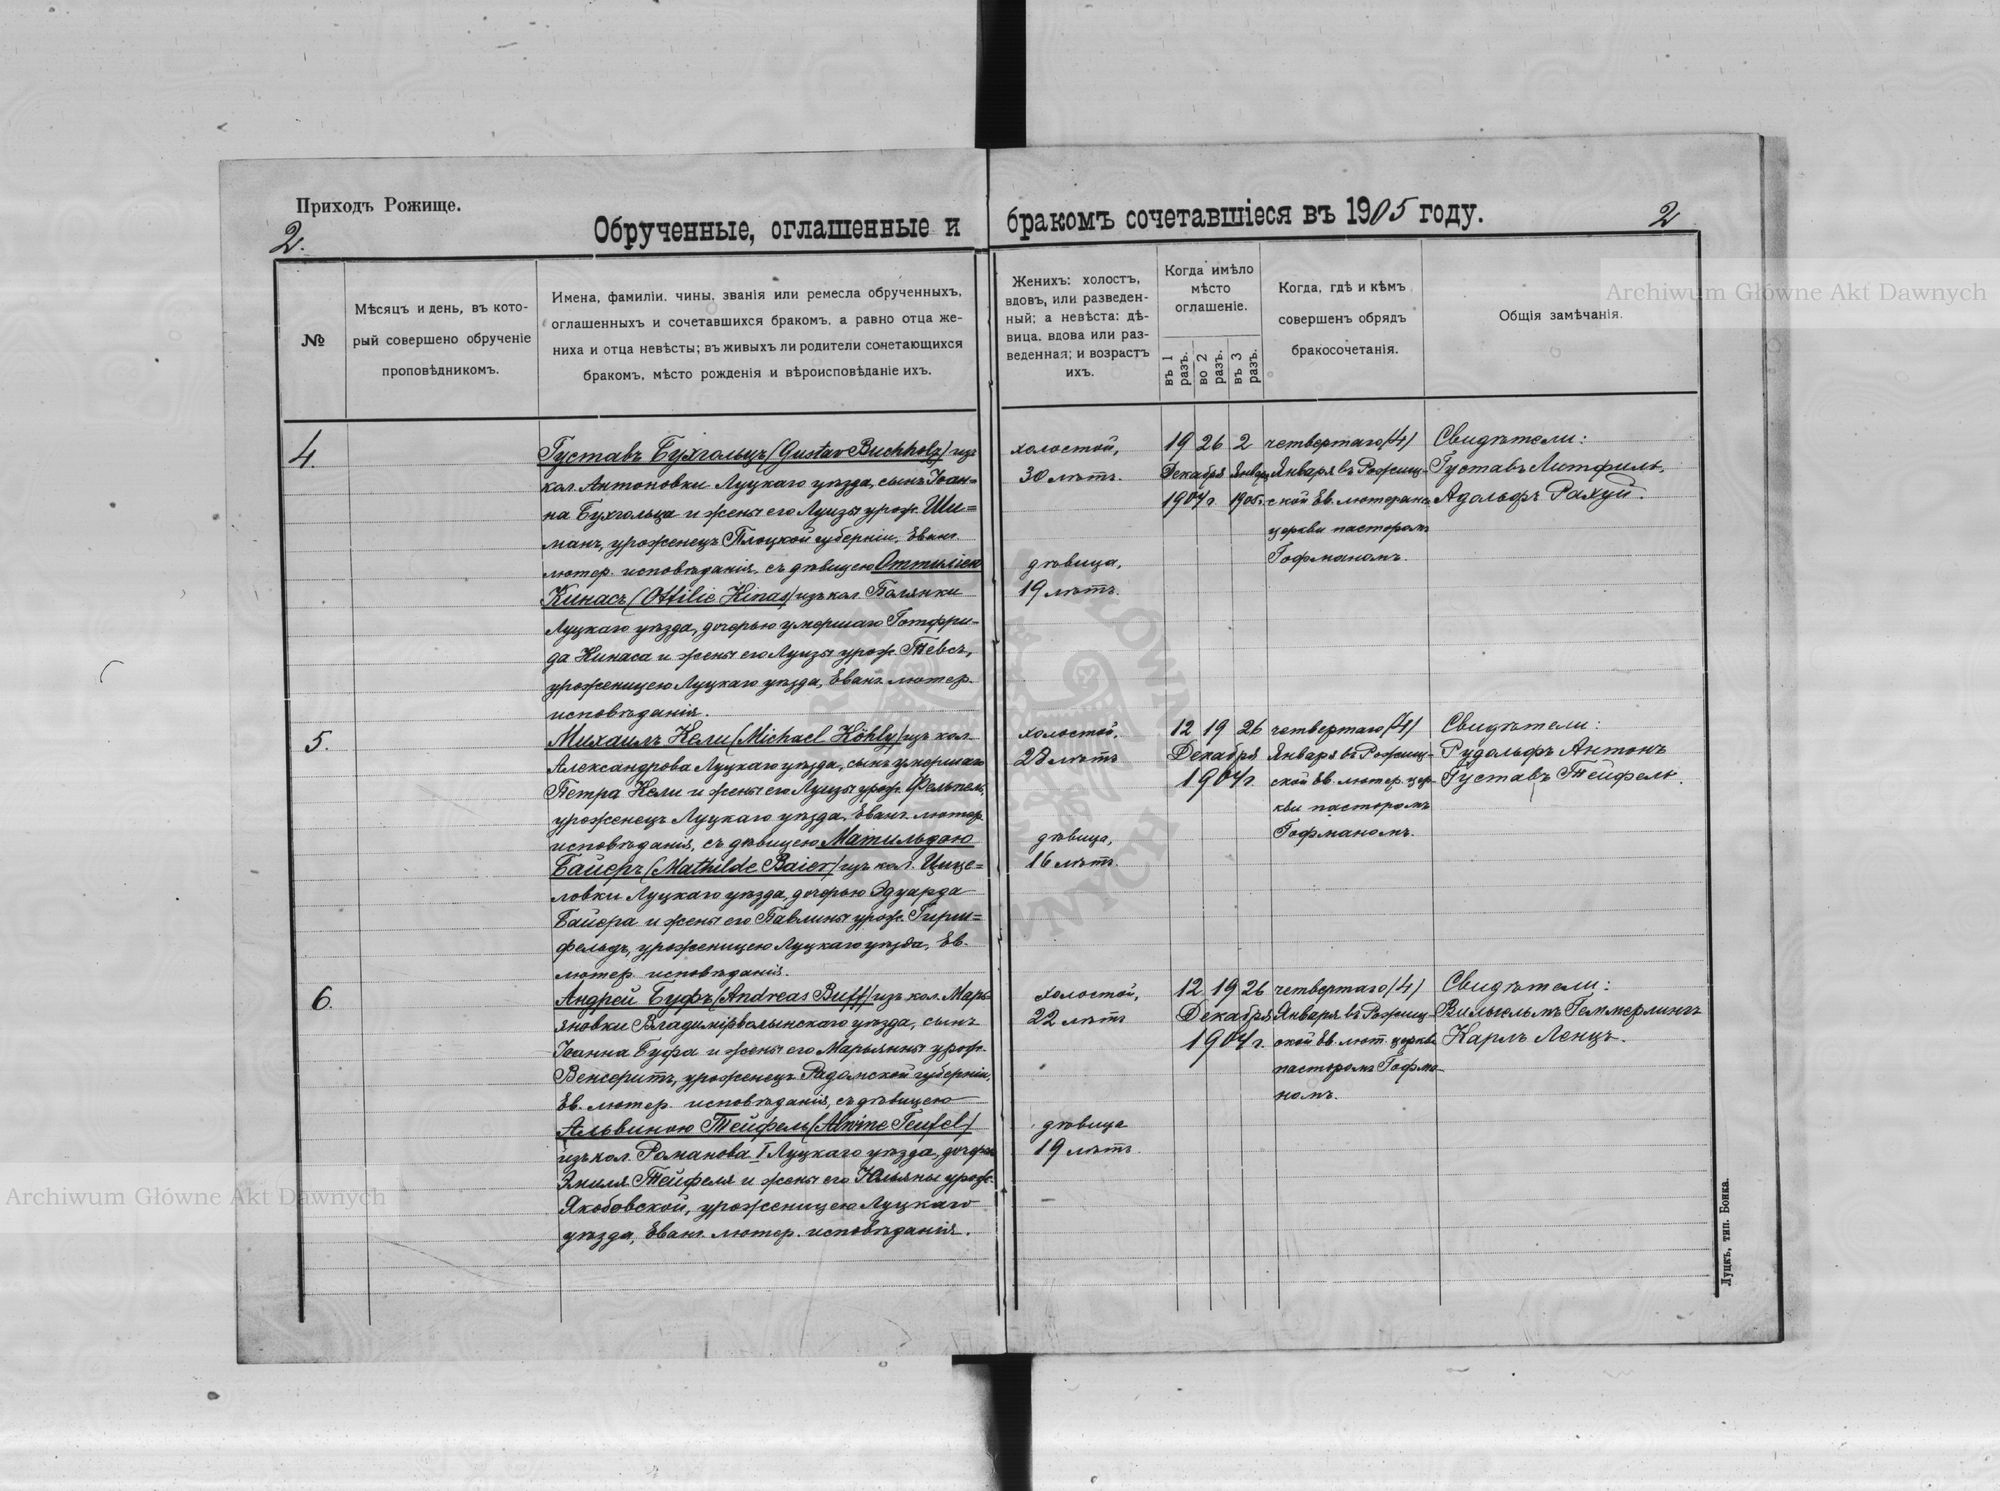 Приходъ Рожище.
2.
Обрученные, оглашенные и бракомъ сочетавшіеся въ 1905 году.
2
№
Мѣсяцъ и день, въ кото-
рый совершено обрученіе
проповѣдникомъ.
Имена, фамиліи, чины, званія или ремесла обрученныхъ,
оглашенныхъ и сочетавшихся бракомъ, а равно отца же-
ниха и отца невѣсты; въ живыхъ ли родители сочетающихся
бракомъ, мѣсто рожденія и вѣроисповѣданіе ихъ.
Женихъ: холостъ,
вдовъ, или разведен-
ный; а невѣста: дѣ-
вица, вдова или раз-
веденная; и возрастъ
ихъ.
Когда имѣло
мѣсто
оглашеніе.
въ 1 разъ.
во 2 разъ.
въ 3 разъ.
Когда, гдѣ и кѣмъ
совершенъ обрядъ
бракосочетанія.
Общія замѣчанія.
4.
Густавъ Бухгольцъ (Gustav Buchholz) изъ
кол. Антоновки Луцкаго уѣзда, сынъ Іоан=
на Бухгольца и жены его Луизы урож. Ши=
манъ, уроженецъ Плоцкой губерніи, Еванг.
лютер. исповѣданія, съ дѣвицею Оттиліею
Кинасъ (Ottilie Kinas) изъ кол. Полянки
Луцкаго уѣзда, дочерью умершаго Готфри-
да Кинаса и жены его Луизы урож. Тевсъ,
уроженицею Луцкаго уѣзда, Еванг. лютер.
исповѣданія.
холостой,
30 лѣтъ.
дѣвица,
19 лѣтъ.
19 26 2
Декабря Января
1904 г. 1905 г.
четвертаго (4)
Января въ Рожищ-
ской Ев. лютеранс.
церкви пасторомъ
Гофманомъ.
Свидѣтели:
Густавъ Литфиль,
Адольфъ Рахуй.
5.
Михаилъ Кели (Michael Köhly) изъ кол.
Александрова Луцкаго уѣзда, сынъ умершаго
Петра Кели и жены его Луизы урож. Фельпель,
уроженецъ Луцкаго уѣзда, Еванг. лютер.
исповѣданія, съ дѣвицею Матильдою
Байеръ (Mathilde Baier) изъ кол. Цице=
ловки Луцкаго уѣзда, дочерью Эдуарда
Байера и жены его Павлины урож. Гирш=
фельдъ, уроженицею Луцкаго уѣзда, Ев.
лютер. исповѣданія.
холостой,
22 лѣтъ
дѣвица,
16 лѣтъ.
12 19 26
Декабря
1904 г.
четвертаго (4)
Января въ Рожищ-
ской Ев. лютер. цер-
кви пасторомъ
Гофманомъ.
Свидѣтели:
Рудольфъ Антонъ
Густавъ Тейфель.
6.
Андрей Буфъ (Andreas Buff) изъ кол. Марь-
яновки Владимірволынскаго уѣзда, сынъ
Іоанна Буфа и жены его Марьянны урож.
Венсеритъ, уроженецъ Радомской губерніи,
Ев. лютер. исповѣданія, съ дѣвицею
Альвиною Тейфель (Alwine Teufel)
изъ кол. Романова I Луцкаго уѣзда, дочерью
Эмиля Тейфеля и жены его Юльяны урож.
Якобовской, уроженицею Луцкаго
уѣзда, Еванг. лютер. исповѣданія.
холостой,
22 лѣтъ
дѣвица
19 лѣтъ.
12 19 26
Декабря
1904 г.
четвертаго (4)
Января въ Рожищ-
ской Ев. лют. церкви
пасторомъ Гофма-
номъ.
Свидѣтели:
Вильгельмъ Геммерлингъ
Карлъ Ленцъ.
Луцкъ, тип. Бонка.
Archiwum Główne Akt Dawnych
Archiwum Główne Akt Dawnych